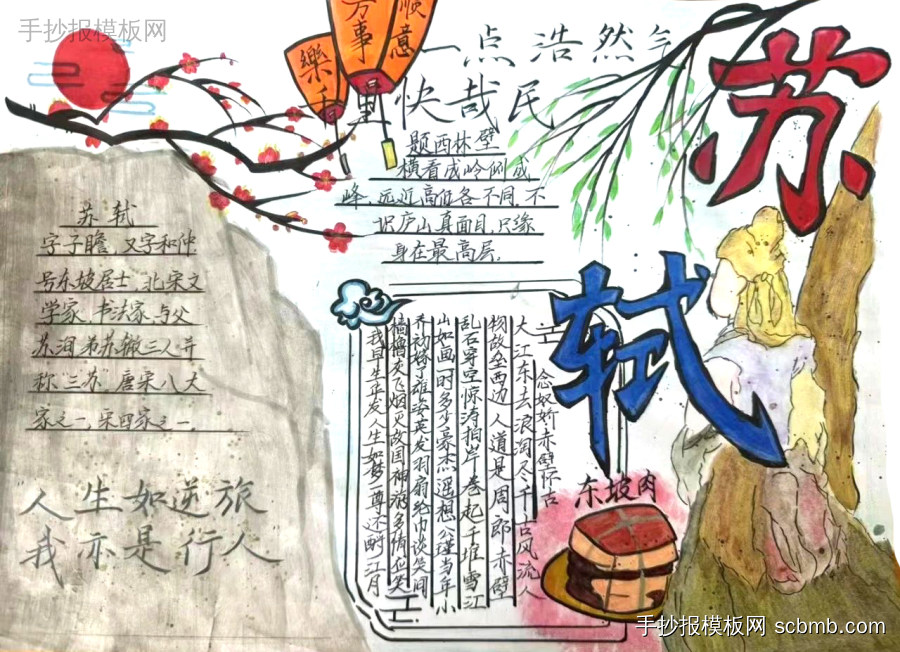 手抄报模板网
萬事
順意
樂
香里
一点浩然气
快哉民
苏
轼
题西林壁
横看成岭侧成
峰,远近高低各不同,不
识庐山真面目,只缘
身在最高层.
苏轼
字子瞻,又字和仲
号东坡居士,北宋文
学家,书法家,与父
苏洵弟苏辙三人并
称三苏,唐宋八大
家之一,宋四家之一.
人生如逆旅
我亦是行人
念奴娇赤壁怀古
大江东去浪淘尽千古风流人
物故垒西边人道是周郎赤壁
乱石穿空惊涛拍岸卷起千堆雪江
山如画一时多少豪杰遥想公瑾当年小
乔初嫁了雄姿英发羽扇纶巾谈笑间
樯橹灰飞烟灭故国神游多情应笑
我早生华发人生如梦一尊还酹江月
东坡肉
手抄报模板网 scbmb.com